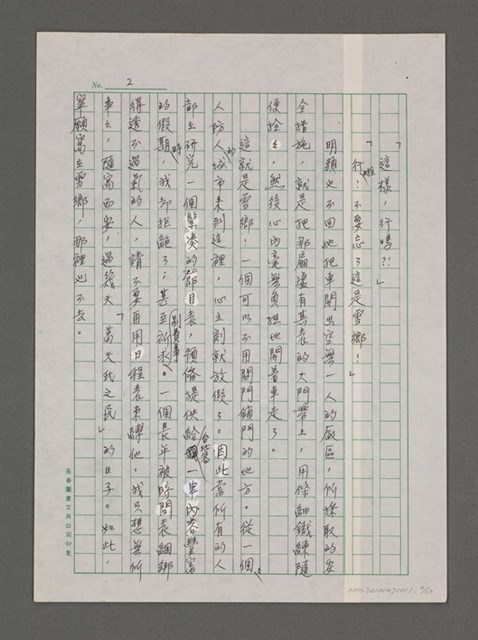 No. 2
「這樣,行嗎?!」
「行啦!不要忘了這是雪鄉!」
明頭也不回地把車開出空無一人的廠區,所採取的安
全措施,就是把那扇虛有其表的大門帶上,用條細鐵鍊隨
便拴上,然後心內毫無負擔地開著車走了。
這就是雪鄉!一個可以不用關門鎖門的地方。從一個
人防人的城市來到這裡,心立刻就放假了。因此當所有的人
都在研究一個緊湊的節目表,預備提供給台北客一串內容豐富
的假期時,我卻拒絕了;甚至祈求別費事。一個長年被時間表綑綁
得透不過氣的人,請不要再用日程表束縛他。我只想無所
事事,隨寓而安,過幾天「葛天氏之民」的日子。如此,
單願窩在雪鄉,那裡也不去。